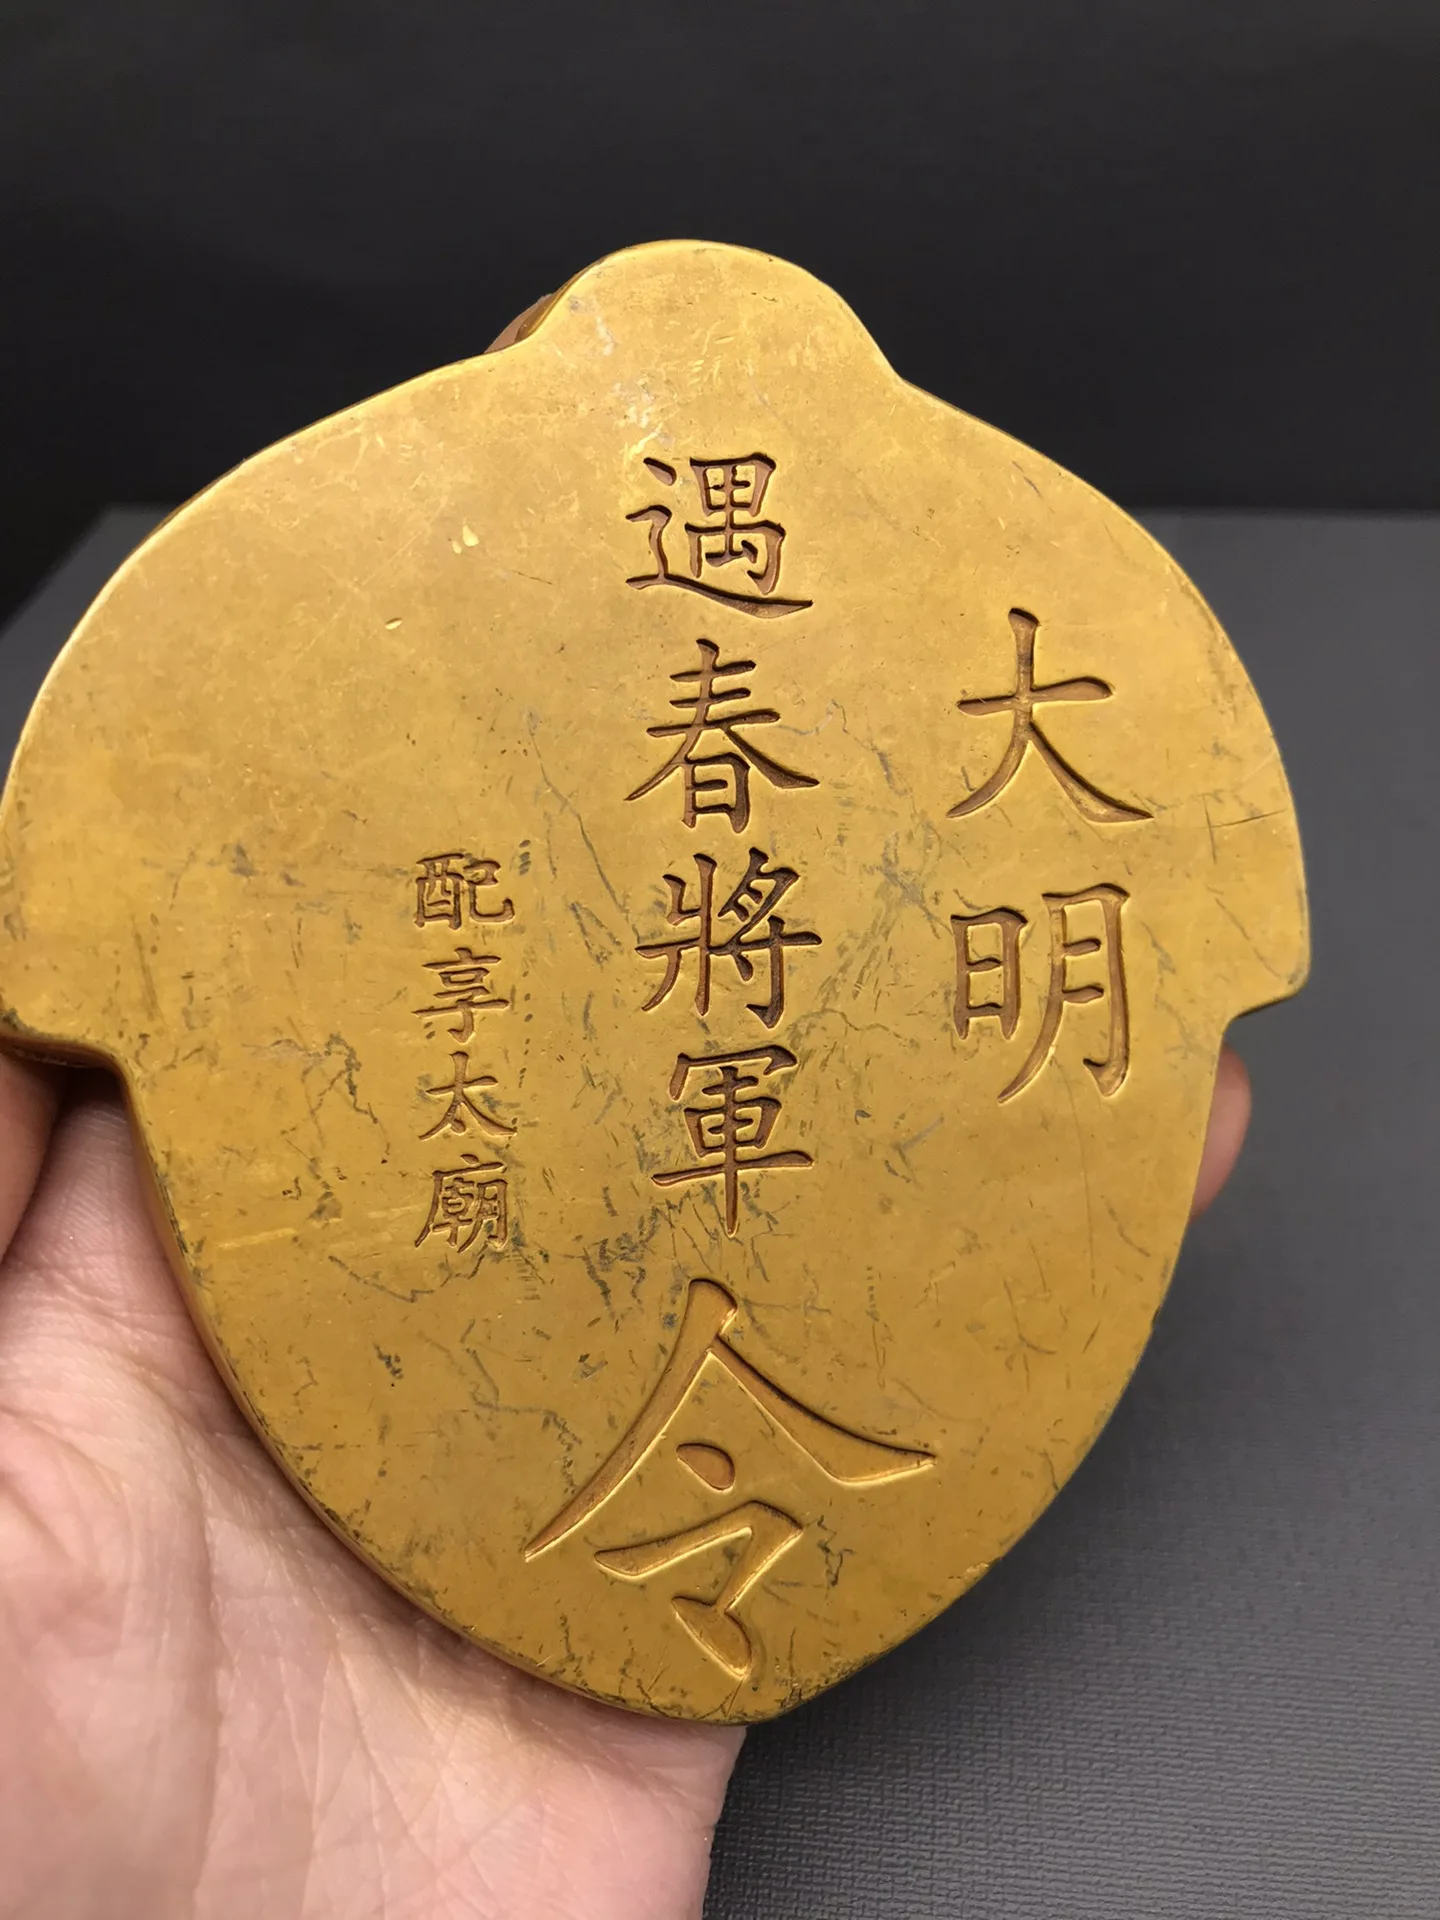 大明
遇春將軍令
配享太廟